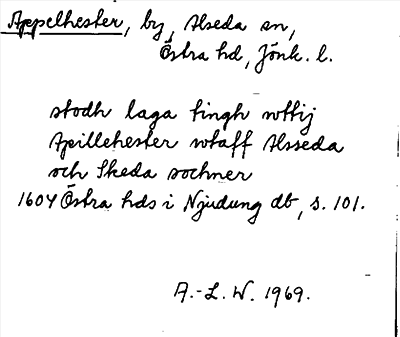 Appelhester, by, Alseda sn,
Östra hd, Jönk. l.
stodh laga tingh wttij
Apillehester wtaff Alsseda
och Skeda sochner
1604 Östra hds i Njudung db, s. 101.
A.-L. W. 1969.